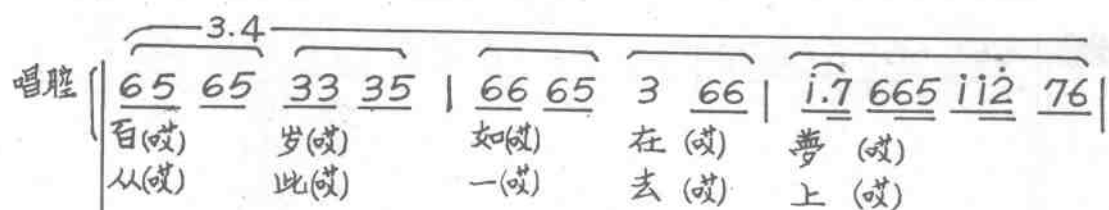 3.4
唱腔 65 65 33 35 | 66 65 3 66 | i.7 665 iiż 76 |
百(哎) 岁(哎) 如(哎) 在(哎) 夢(哎)
从(哎) 此(哎) 一(哎) 去(哎) 上(哎)